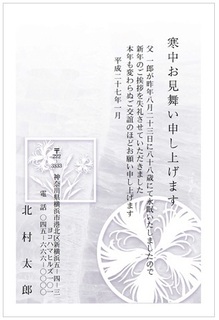 寒中お見舞い申し上げます
父 一郎が昨年八月二十三日に八十八歳にて永眠いたしましたので
新年のご挨拶を失礼させていただきました
本年も変わらぬご交誼のほどお願い申し上げます
平成二十七年一月
〒222-0033
神奈川県横浜市港北区新横浜五-四-三
ヨコハマヒルズ一〇一
電話 〇四五-六六六-〇〇〇〇
北村 太郎